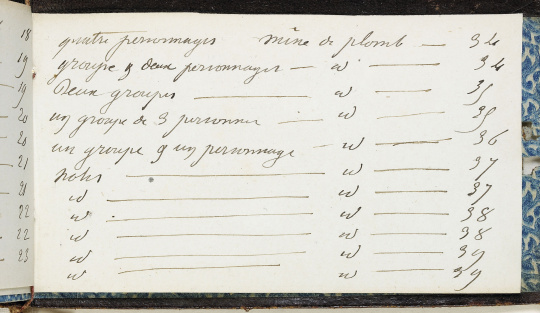 18
19
19
20
20
21
21
22
22
23
quatre personnages mine de plomb — 34
groupe & deux personnages — id — 34
Deux groupes — id — 35
un groupe de 3 personnes — id — 35
un groupe & un personnage — id — 36
— id — 37
id — id — 37
id — id — 38
id — id — 38
id — id — 39
id — id — 39